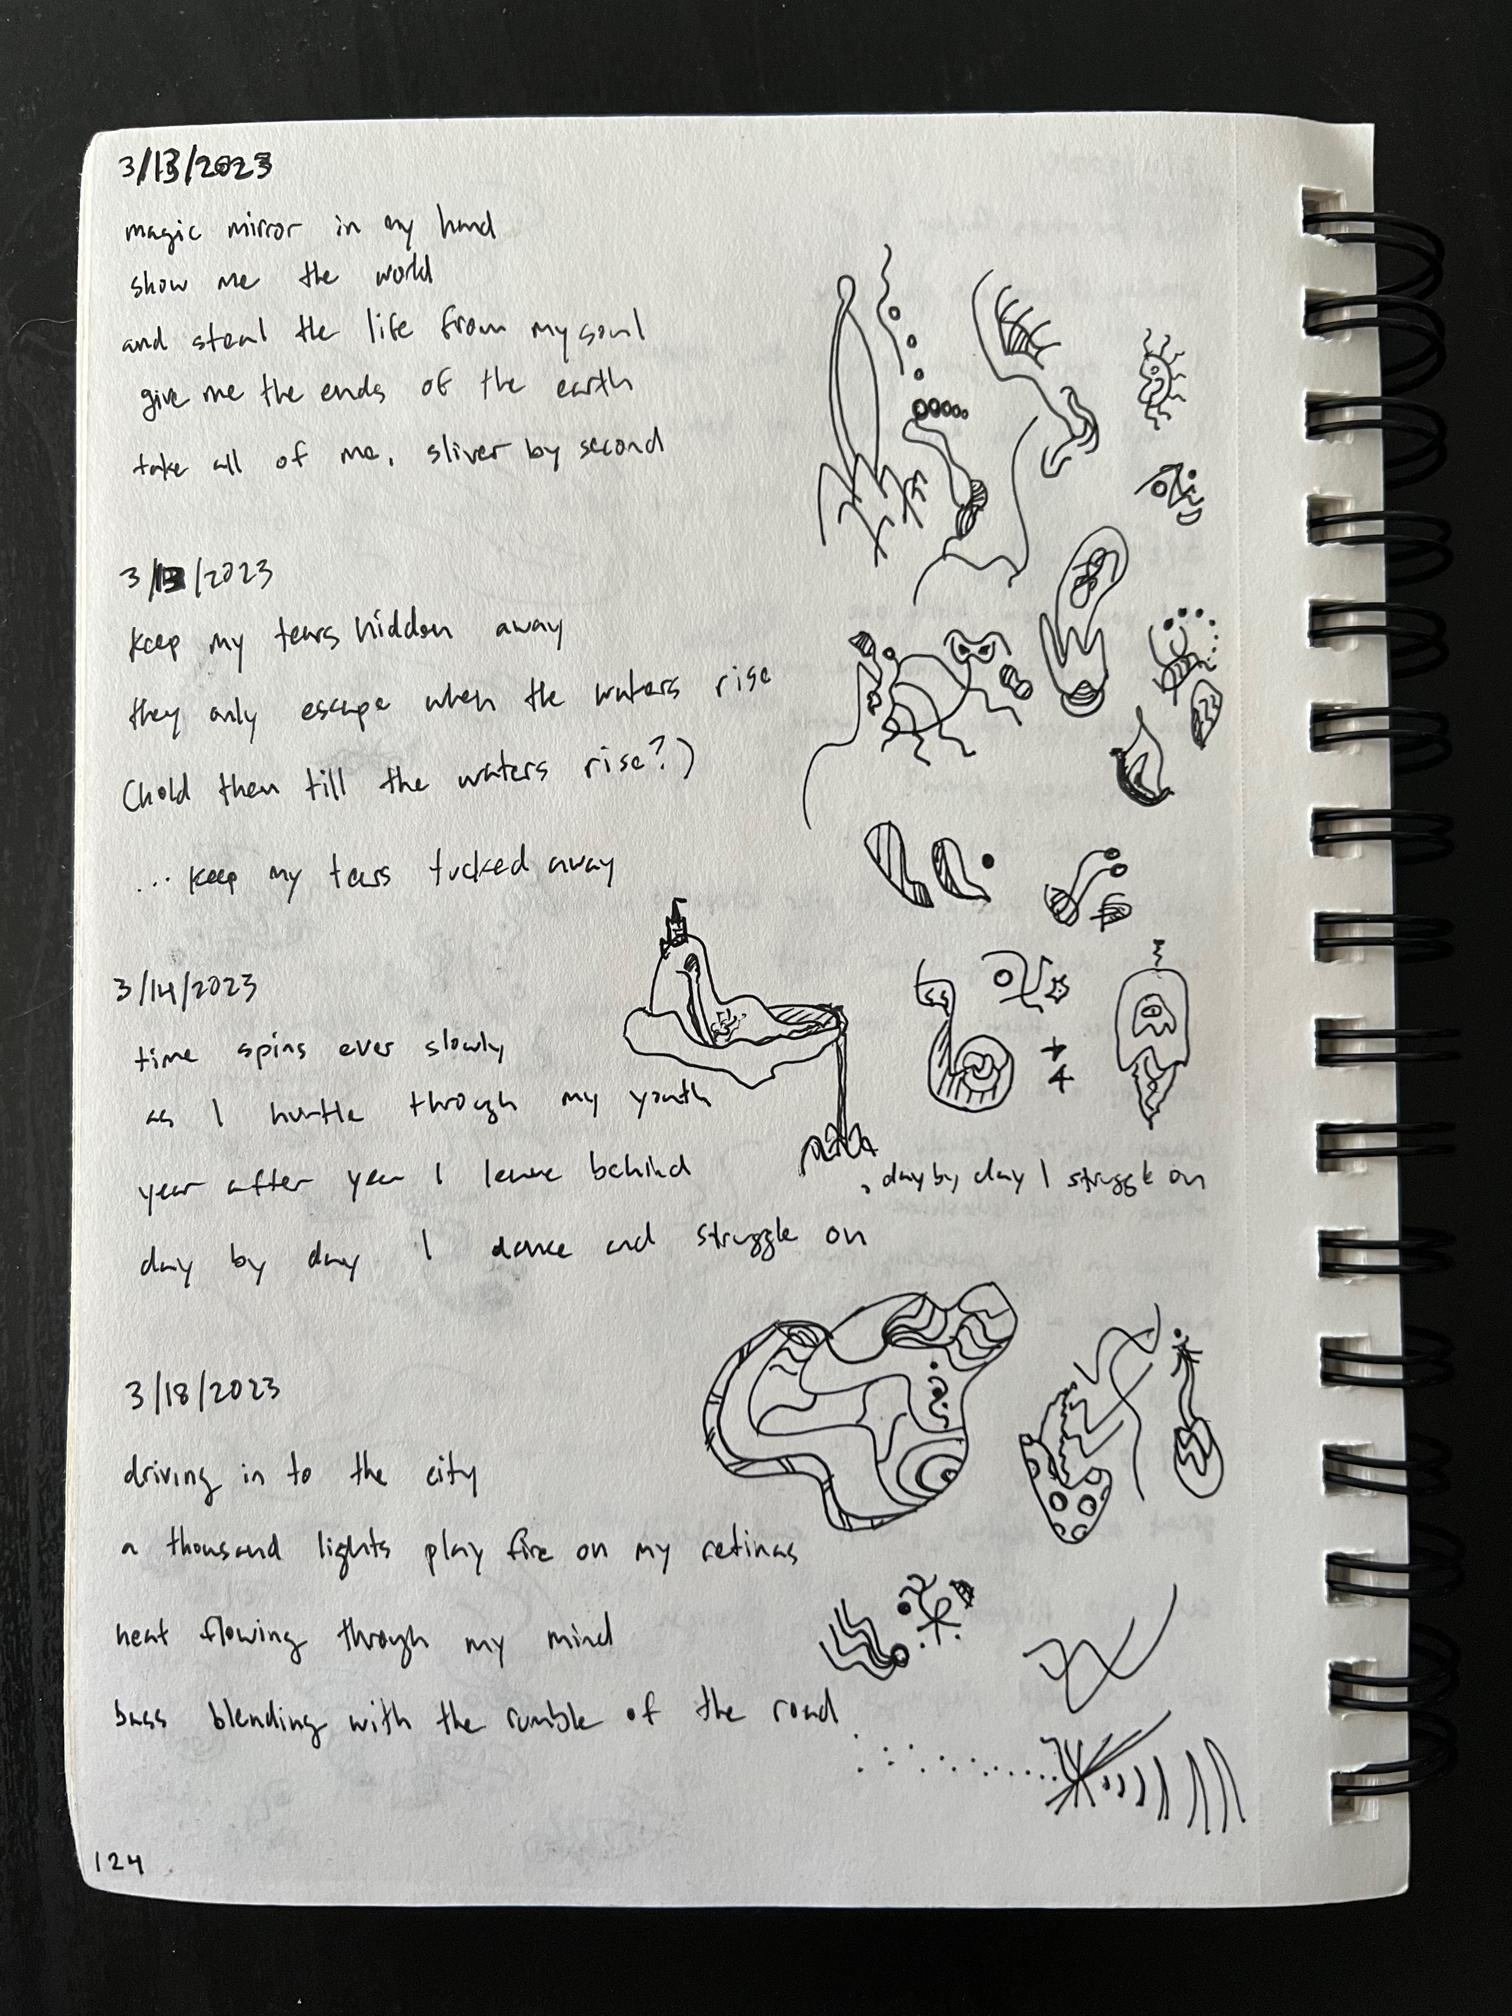 3/13/2023
magic mirror in my hand
show me the world
and steal the life from my soul
give me the ends of the earth
take all of me, sliver by second
3/13/2023
keep my tears hidden away
they only escape when the waters rise
(hold them till the waters rise?)
... keep my tears tucked away
3/14/2023
time spins ever slowly
as I hurtle through my youth
year after year I leave behind
, day by day I struggle on
day by day I dance and struggle on
3/18/2023
driving in to the city
a thousand lights play fire on my retinas
heat flowing through my mind
bass blending with the rumble of the road
124